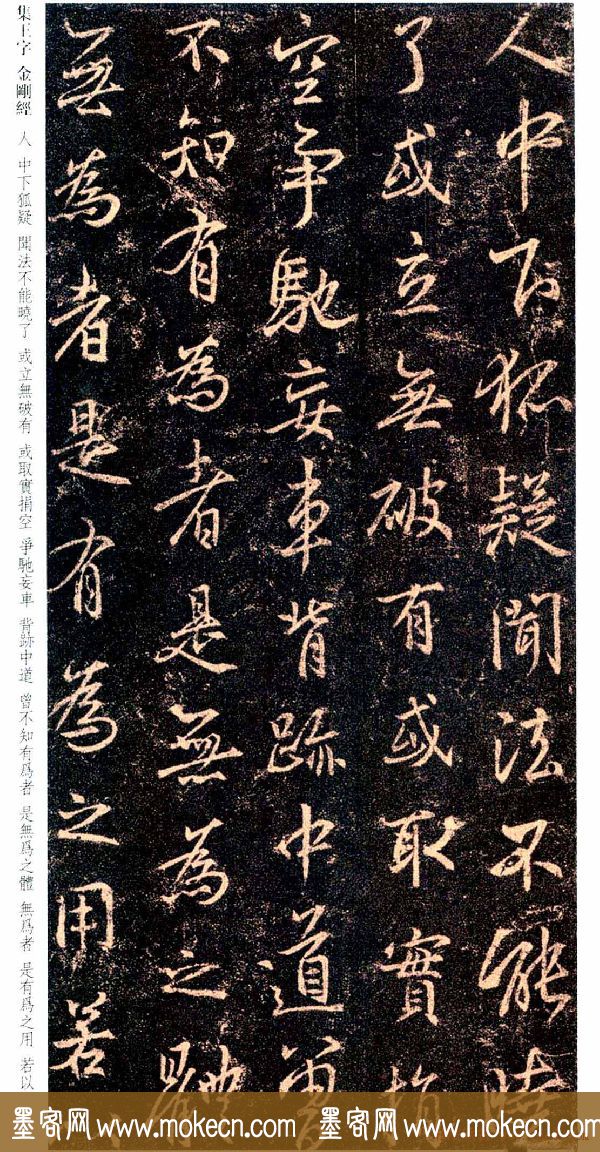 人中下狐疑聞法不能曉
了或立無破有或取實捐
空爭馳妄車背跡中道曾
不知有為者是無為之體
無為者是有為之用若
集王字 金剛經 人 中下狐疑 聞法不能曉了 或立無破有 或取實捐空 爭馳妄車 背跡中道 曾不知有爲者 是無爲之體 無爲者 是有爲之用 若以
墨客网 www.mokecn.com 墨客网 www.mokecn.com